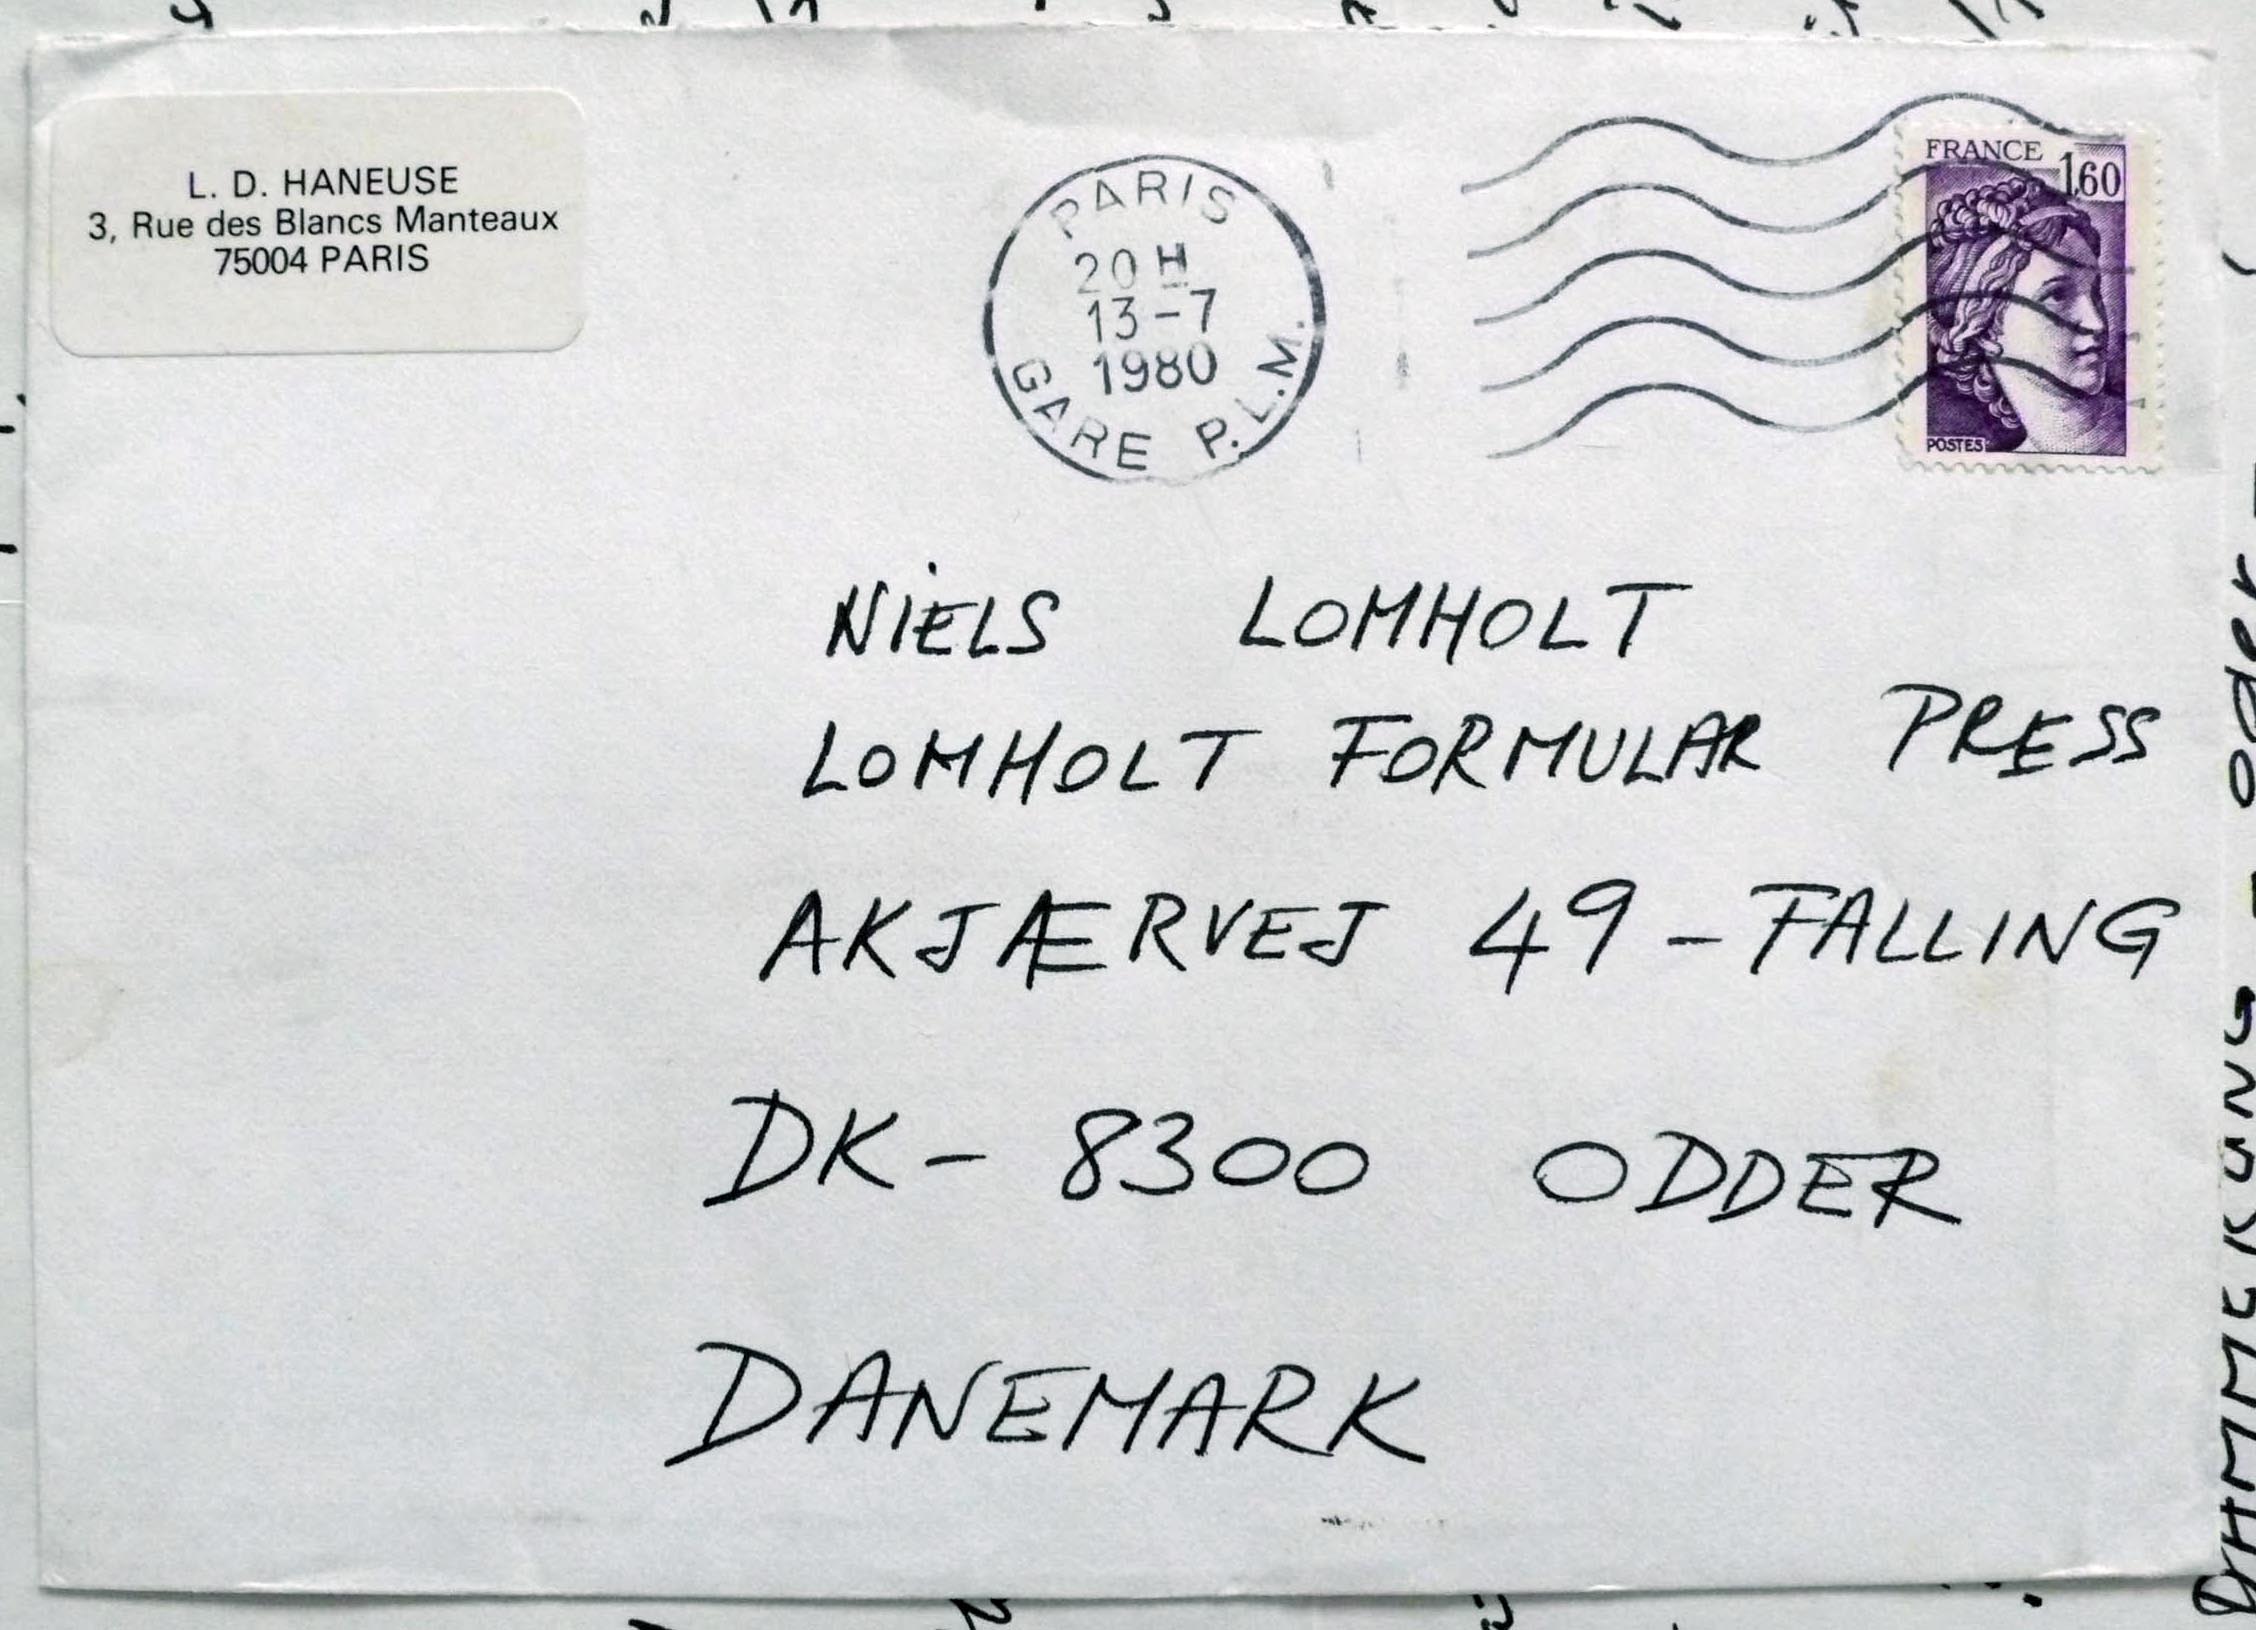 L. D. HANEUSE
3, Rue des Blancs Manteaux
75004 PARIS
PARIS
20 H
13-7
1980
GARE P.L.M.
FRANCE
1,60
POSTES
NIELS LOMHOLT
LOMHOLT FORMULAR PRESS
AKJÆRVEJ 49-FALLING
DK- 8300 ODDER
DANEMARK